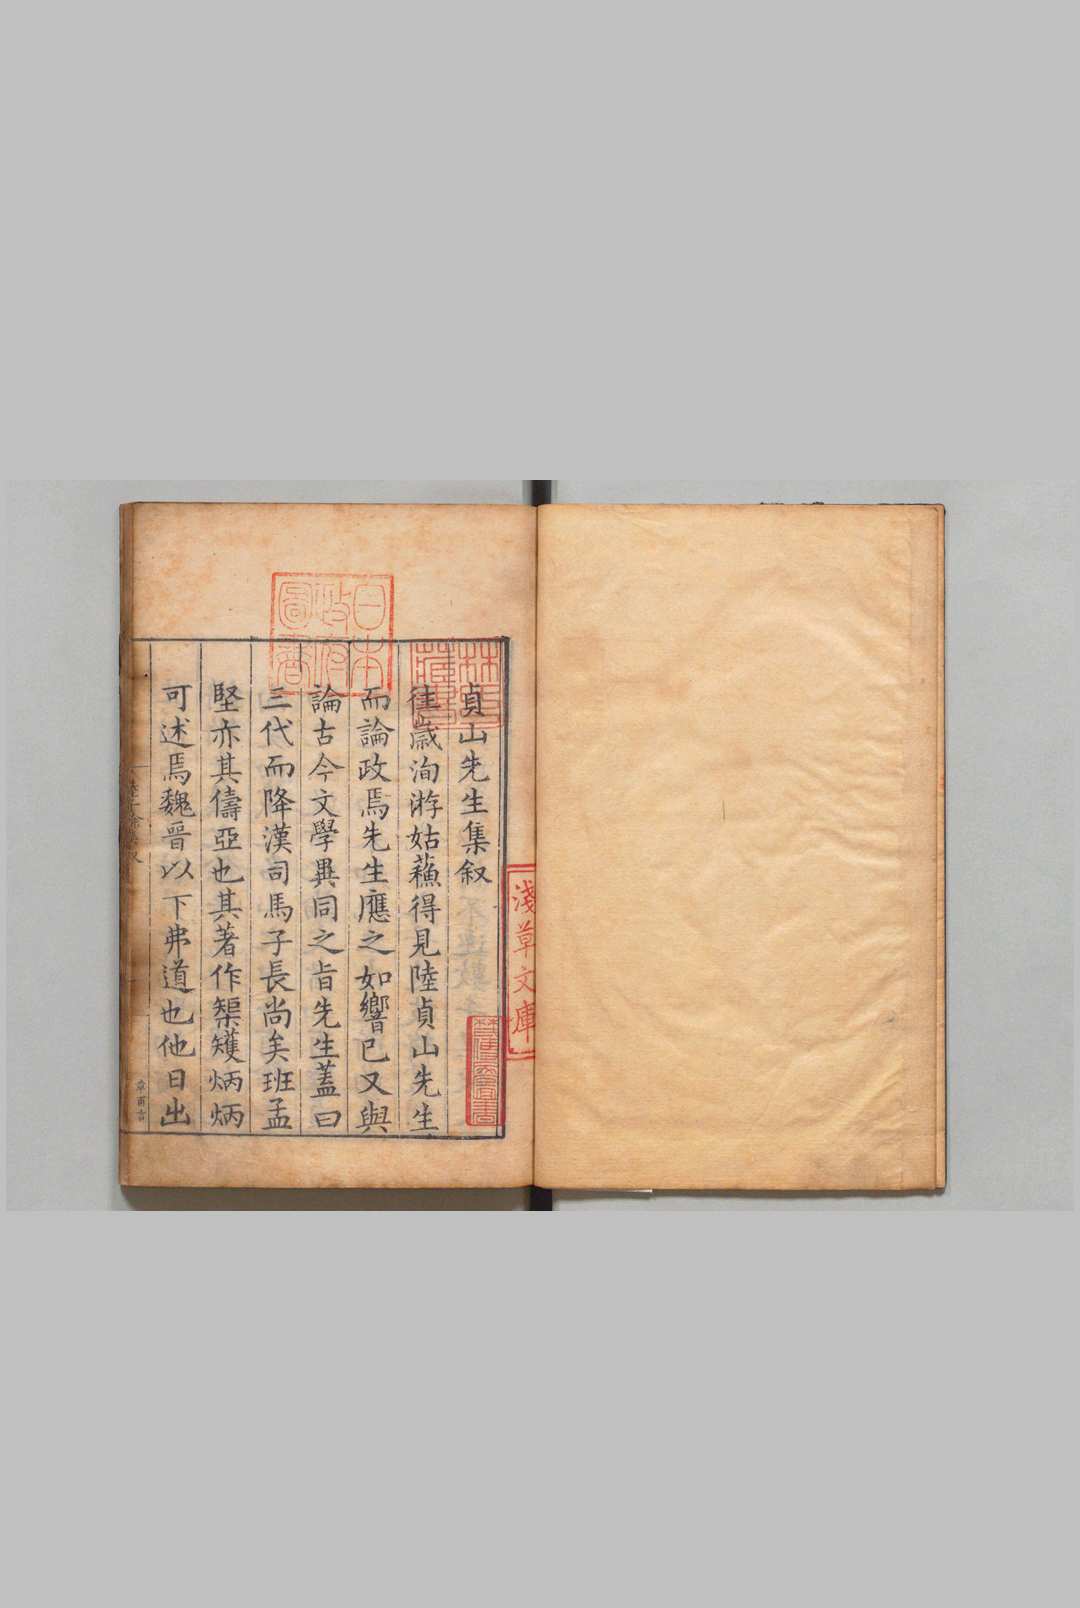 貞山先生集叙
徃歳洵游姑蘓得見陸貞山先生
而論政焉先生應之如響已又與
論古今文學異同之旨先生蓋曰
三代而降漢司馬子長尚矣班孟
堅亦其儔亞也其著作榘矱炳炳
可述焉魏晉以下弗道也他日出
章甫言
日本政府圖書
林氏藏書
淺草文庫